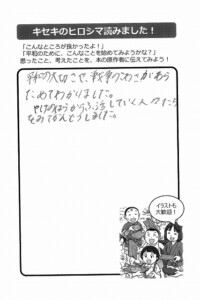 キセキのヒロシマ読みました!
「こんなところが良かったよ!」
「平和のために、こんなことを始めてみようかな?」
思ったこと、考えたことを、本の原作者に伝えてみよう!
平和の大切さや、戦争のこわさがあら
ためてわかりました。
やけのはらからふっ活していく人々たち
をみてかんどうしました。
イラストも
大歓迎!